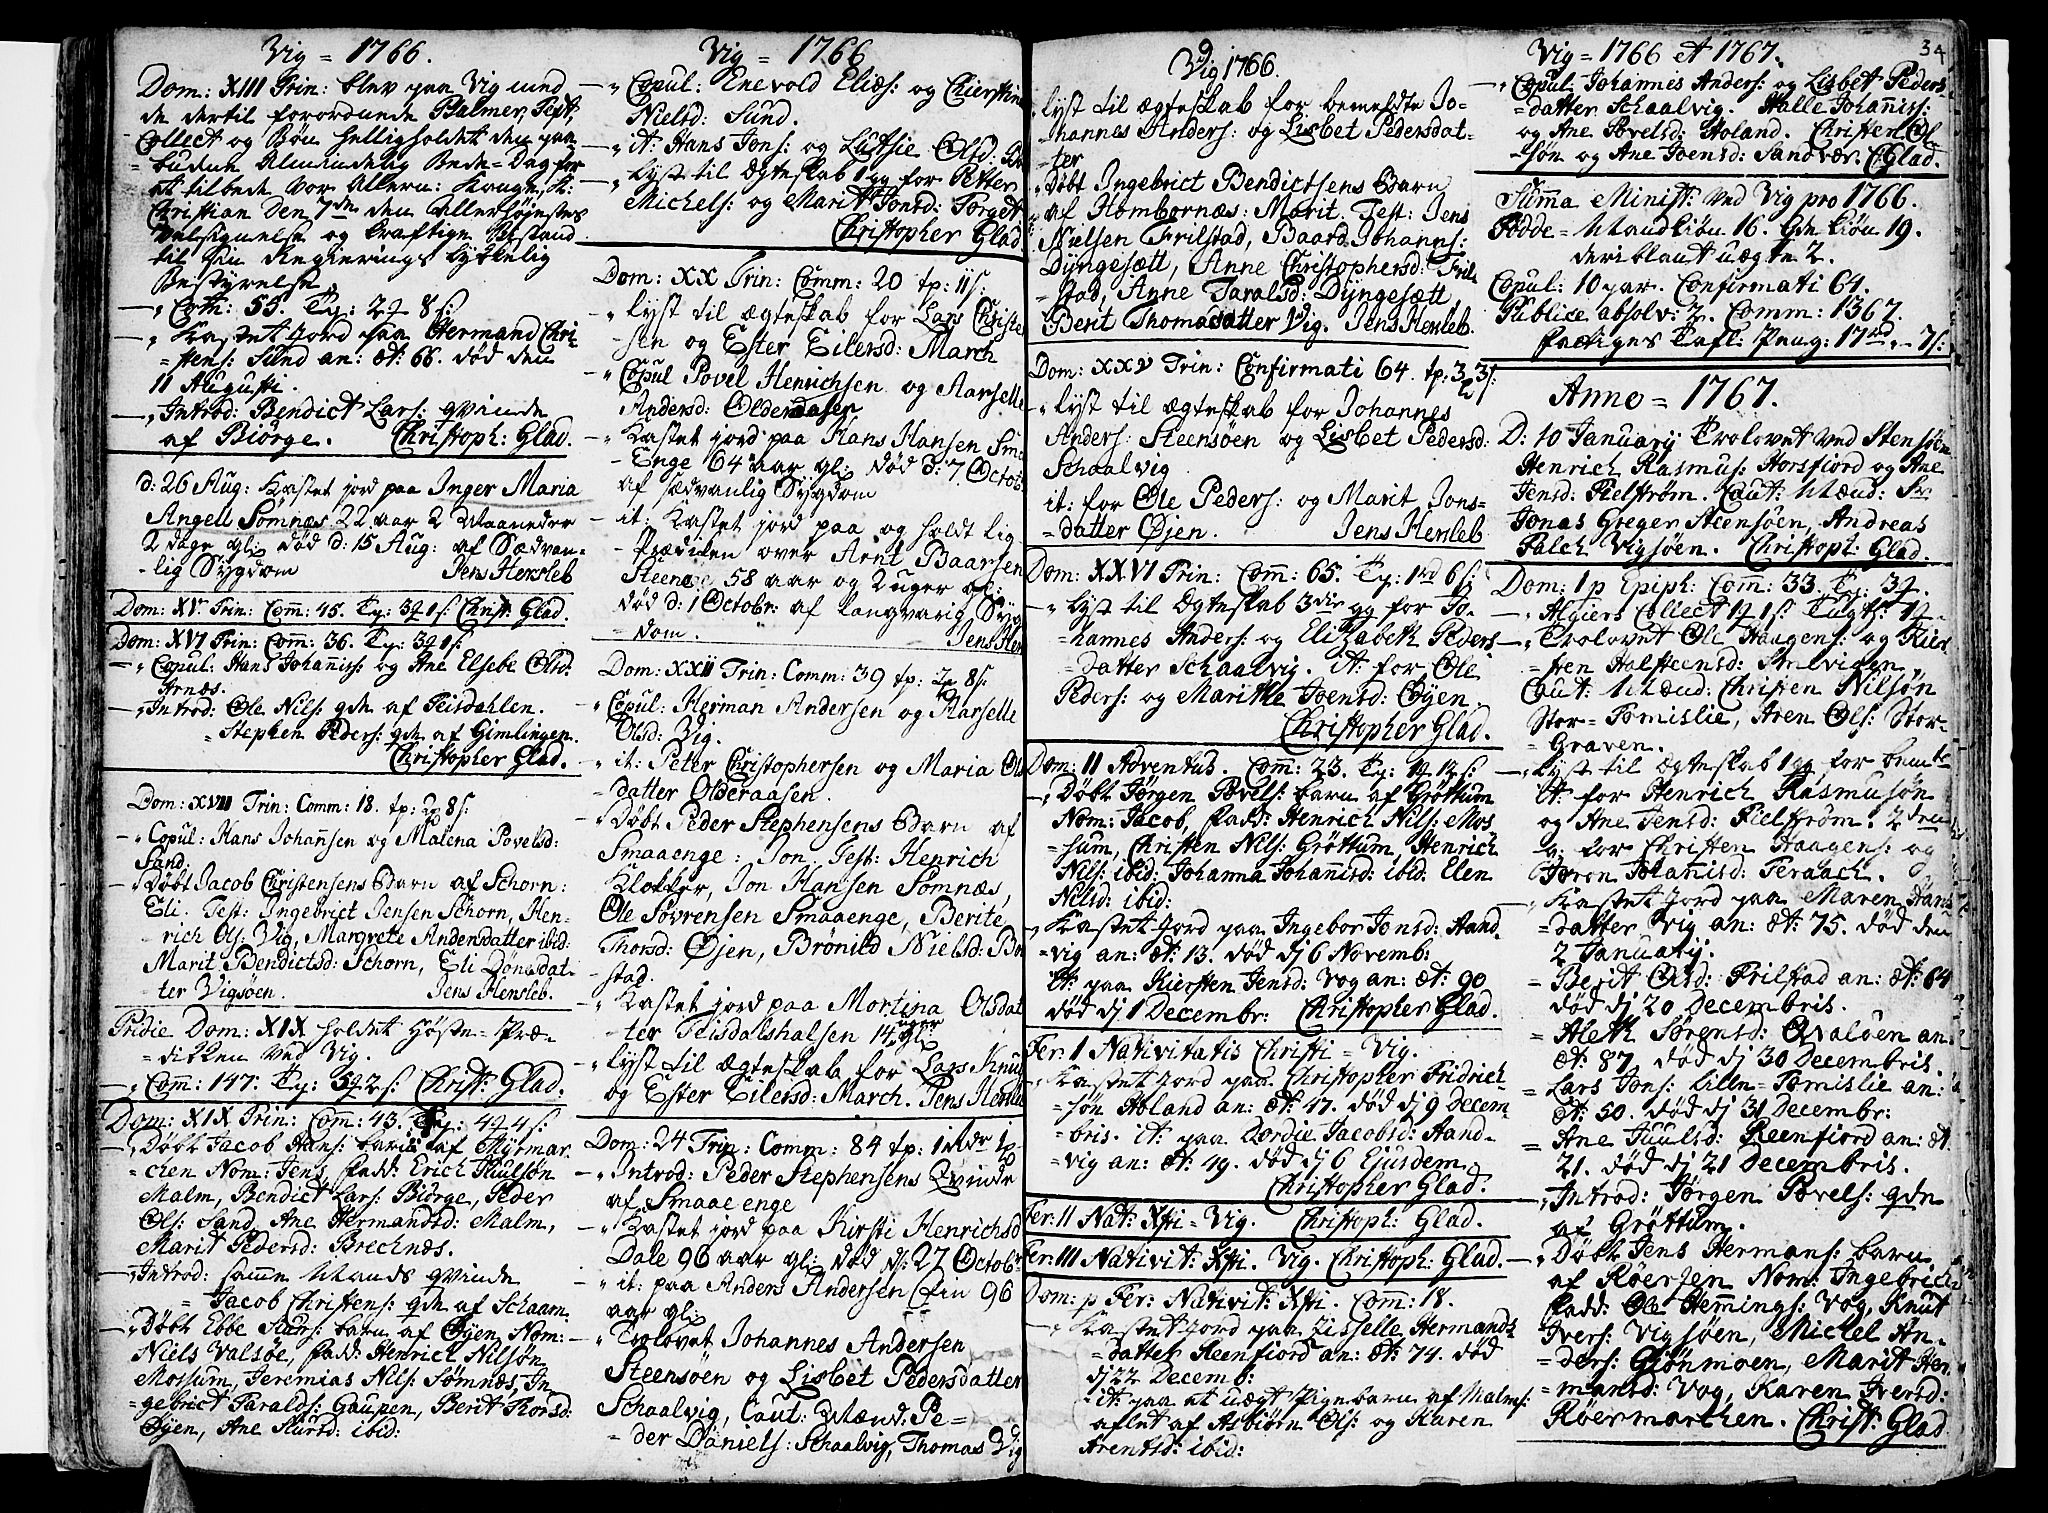 Vig = 1766.
Dom: XIII Trin: blev paa Vig med
de dertil forordnede Psalmer, Text,
Collect og Bøn helligholdet den paa
budne Almindelig Bede-Dag for
at tilbede vor Allern: Konge, K:
Christian den 7de den Allerhøjestes
Velsignelse og kraftige Bistand
til Sin Regierings lykkelig
Bestyrelse
Com: 55. Tp: 2 8 s:
Kastet jord paa Hermand Chri-
stens: Sund an: æt: 66. død den
11 Augusti.
Introd: Bendict Lars: qvinde
af Biørge. Christoph: Glad.
d: 26 Aug: Kastet jord paa Inger Maria
Angell Sømnes 22 aar 2 Maaneder
2 dage gl: død d: 15 Aug: af Sædvan-
lig Sygdom Jens Hersleb
Dom: XV Trin: Com: 45. Tp: 3 1 s: Christ: Glad.
Dom: XVI Trin: Com: 36. Tp: 3 1 s:
Copul: Hans Johaniss: og Ane Elsebe Olsd:
Arnæs.
Introd: Ole Nils: qde af Teisdahlen.
Stephen Peders: qde af Gimlingen.
Christopher Glad.
Dom: XVII Trin: Comm: 18. tp: 2 8 s:
Copul: Hans Johansen og Malena Povelsd:
Sand.
Døbt Jacob Christensens Barn af Schorn:
Eli. Test: Ingebrict Jensen Schorn, Hen-
rich Ols: Vig, Margrete Andersdatter ibid:
Marit Bendictsd: Schorn, Eli Dønesdat-
ter Vigsøen. Jens Hersleb.
Pridie Dom: XIX holdet Høste-Præ-
diken ved Vig.
Com: 147. Tp: 5 2 s: Christ: Glad.
Dom: XIX Trin: Com: 43. Tp: 4 4 s:
Døbt Jacob Hans: barn af Myrmar-
chen Nom: Jens, fadd: Erich Juulsøn
Malm, Bendict Lars: Biørge, Peder
Ols: Sand, Ane Hermandsd: Malm,
Marit Pedersd: Brechnæs.
Introd: samme Mands qvinde
Jacob Christens: qde af Schaarn.
Døbt Ebbe Siurs: barn af Øyen Nom:
Niels Valsøe, fadd: Henrich Nilsøn
Mossum, Jeremias Nils: Sømnæs, In
gebrict Taralds: Gaupen, Berit Torsd:
Øyen, Ane Siursd: ibid:
Vig = 1766
Copul: Enevold Eliæs: og Chierstine
Nielsd: Sund.
it: Hans Jons: og Lutsie Olsd:
Lyst til Ægteskab 1 gg for Petter
Michels: og Marit Jonsd: Torget
Christopher Glad
Dom: XX Trin: Comm: 20 tp: 11 s:
Lyst til ægteskab for Lars Christe
sen og Ester Eilersd: March
Copul Povel Henrichsen og Aarselle
Andersd: Olderaasen
Kastet jord paa Hans Hansen Sm:
Enge 64 aar gl: død d: 7 Octob
af sædvanlig Sygdom
it: Kastet jord paa og holdt Lig
Prædiken over Arnt Baarsen
Steenøe 58 aar og 2 uger gl:
død d: 1 Octobr: af langvarig Syg
dom. Jens Hers
Dom: XXII Trin: Comm: 39 tp: 2 8 s:
Copul: Herman Andersen og Aarselle
Olsd: Vig.
it: Peter Christophersen og Maria Ols
datter Olderaasen.
Døbt Peder Stephensens Barn af
Smaaenge: Jon. Test: Henrich
Klokker, Jon Hansen Sømnæs,
Ole Søvrensen Smaaenge, Berite
Thorsd: Øjen, Brønild Nielsd:
stad.
Kastet jord paa Mortina Olsdat
ter Teisdalshalsen 14 uger gl:
Lyst til ægteskab for Lars Knud
og Ester Eilersd: March. Jens Hersleb
Dom: 24 Trin: Comm: 84 tp: 1 Rdr 1
Introd: Peder Stephensens Qvinde
af Smaaenge
Kastet jord paa Kirsti Henrichsd
Dale 96 aar gl: død d: 27 Octob:
it: paa Anders Andersen Ein 96
aar gl:
Trolovet Johannes Andersen
Steensöen og Lisbet Pedersdatter
Schaalvig, Caut: Mænd: Pe-
der Daniels: Schaalvig, Thomas Vig
Vig 1766.
Lyst til ægteskab for bemeldte Jo-
hannes Anders: og Lisbet Pedersdat-
ter
Døbt Ingebrict Bendictsens Barn
af Hombornæs: Marit. Test: Jens
Nielsen Frilstad, Baard Johanns:
Dyngesætt, Anne Christophersd: Fril
stad, Anne Taralsd: Dyngesætt,
Berit Thomasdatter Vig. Jens Hersleb.
Dom: XXV Trin: Confirmati 64. tp: 3 3 s:
Lyst til ægteskab for Johannes
Anders: Steensöen og Lisbet Pedersd:
Schaalvig
it: for Ole Peders: og Marit Jons-
datter Øjen. Jens Hersleb
Dom: XXVI Trin: Com: 65. Tp: 1 rd 6 s:
Lyst til Ægteskab 3die gg for Jo-
hannes Anders: og Elizabeth Peders
datter Schaalvig. it: for Ole
Peders: og Marithe Joensd: Øyen.
Christopher Glad.
Dom: II Adventus. Com: 23. Tp: 1 12 s:
Døbt Jørgen Povels: barn af Grøttum
Nom: Jacob, fadd: Henrich Nils: Mos
sum, Christen Nils: Grøttum, Henrich
Nils: ibid: Johanna Johanisd: ibid: Elen
Nelsd: ibid:
Kastet jord paa Ingebor Jonsd: Aand-
vig an: æt: 13. død dj 6 Novemb:
It: paa Kiersten Jensd: Vog an: æt: 90
død dj 1 Decembr: Christopher Glad.
Fer: I Nativitatis Christi = Vig.
Kastet jord paa Christopher Fridrich
søn Holand an: æt: 47. død dj 9 Decem-
bris. it: paa Dordie Jacobsd: Aand-
vig an: æt: 49. død dj 6 Ejusdem
Christopher Glad.
Fer: II Nat: Xsti = Vig. Christoph: Glad.
Fer: III Nativit: Xsti. Vig. Christoph: Glad.
Dom: p Fer: Nativit: Xsti. Com: 18.
Kastet jord paa Zisselle Hermands
datter Reenfiord an: æt: 74. død
dj 22 Decemb:
it: paa et uægt Pigebarn af Malm:
aflet af Asbiørn Ols: og Karen
Arentsd: ibid:
34
Vig = 1766 et 1767.
Copul: Johannis Anders: og Lisbet Peders-
datter Schaalvig. Halle Johaniss:
og Ane Povelsd: Holand. Christen Ol-
søn og Ane Joensd: Sandvær. C: Glad.
Summa Minist: ved Vig pro 1766.
Fødde = Mandkiøn 16. Qde kiøn 19.
deriblant uægte 2.
Copul: 10 par. Confirmati 64.
Publice absolv: 2. Comm: 1367.
Fattiges Tafl: Peng: 17 rd „ 7 s:
Anno = 1767.
D: 10 January Trolovet ved Stensøen
Henrich Rasmus: Horsfiord og Ane
Jensd: Fielstrøm. Caut: Mænd: Sr.
Jonas Greger Steensøen, Andreas
Falch Vigsøen. Christoph: Glad.
Dom: 1 p Epiph: Com: 33. Tp: 3
Algiers Collect 1 1 s: Tugts: 1
Trolovet Ole Haagens: og Kier
sten Halsteensd:
Caut: Mænd: Christen Nilsøn
Stor-Tomislie, Aren Ols: Stor-
Graven.
Lyst til ægteskab 1 gg for bemte
It: for Henrich Rasmusøn
og Ane Jensd: Fielstrøm. 2den
g: for Christen Haagens: og
Joren Johanisd: Teraach.
Kastet jord paa Maren Hans
datter Vig an: æt: 75. død den
2 Januarij.
Berit Olsd: Frilstad an: æt: 64
død dj 20 Decembris.
Aleth Sørensd: Qvaløen an:
æt: 87. død dj 30 Decembris.
Lars Jons: Lille-Tomislie an:
æt: 50. død dj 31 Decembr:
Ane Juulsd: Reenfiord an: æt:
21. død dj 21 Decembris.
Introd: Jørgen Povels: qde
af Grøttum.
Døbt Jens Hermans: barn
af Røersen Nom: Ingebrich
fadd: Ole Hemings: Vog, Knut
Ivers: Vigsøen, Michel An-
ders: Giønmoen, Marit Her-
mansd: Vog, Karen Iversd:
Røermarchen. Christ: Glad